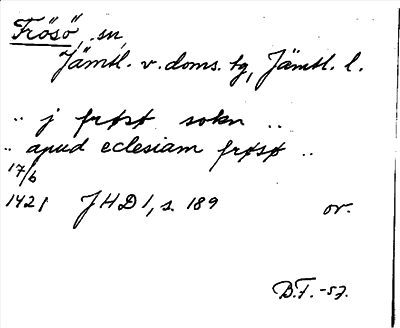 Frösö, sn,
Jämtl. v. doms. tg, Jämtl. l.
.. j frøsø sokn ..
.. apud eclesiam frøsø ..
17/6
1421 JHD 1, s. 189 or.
B.F. -57.